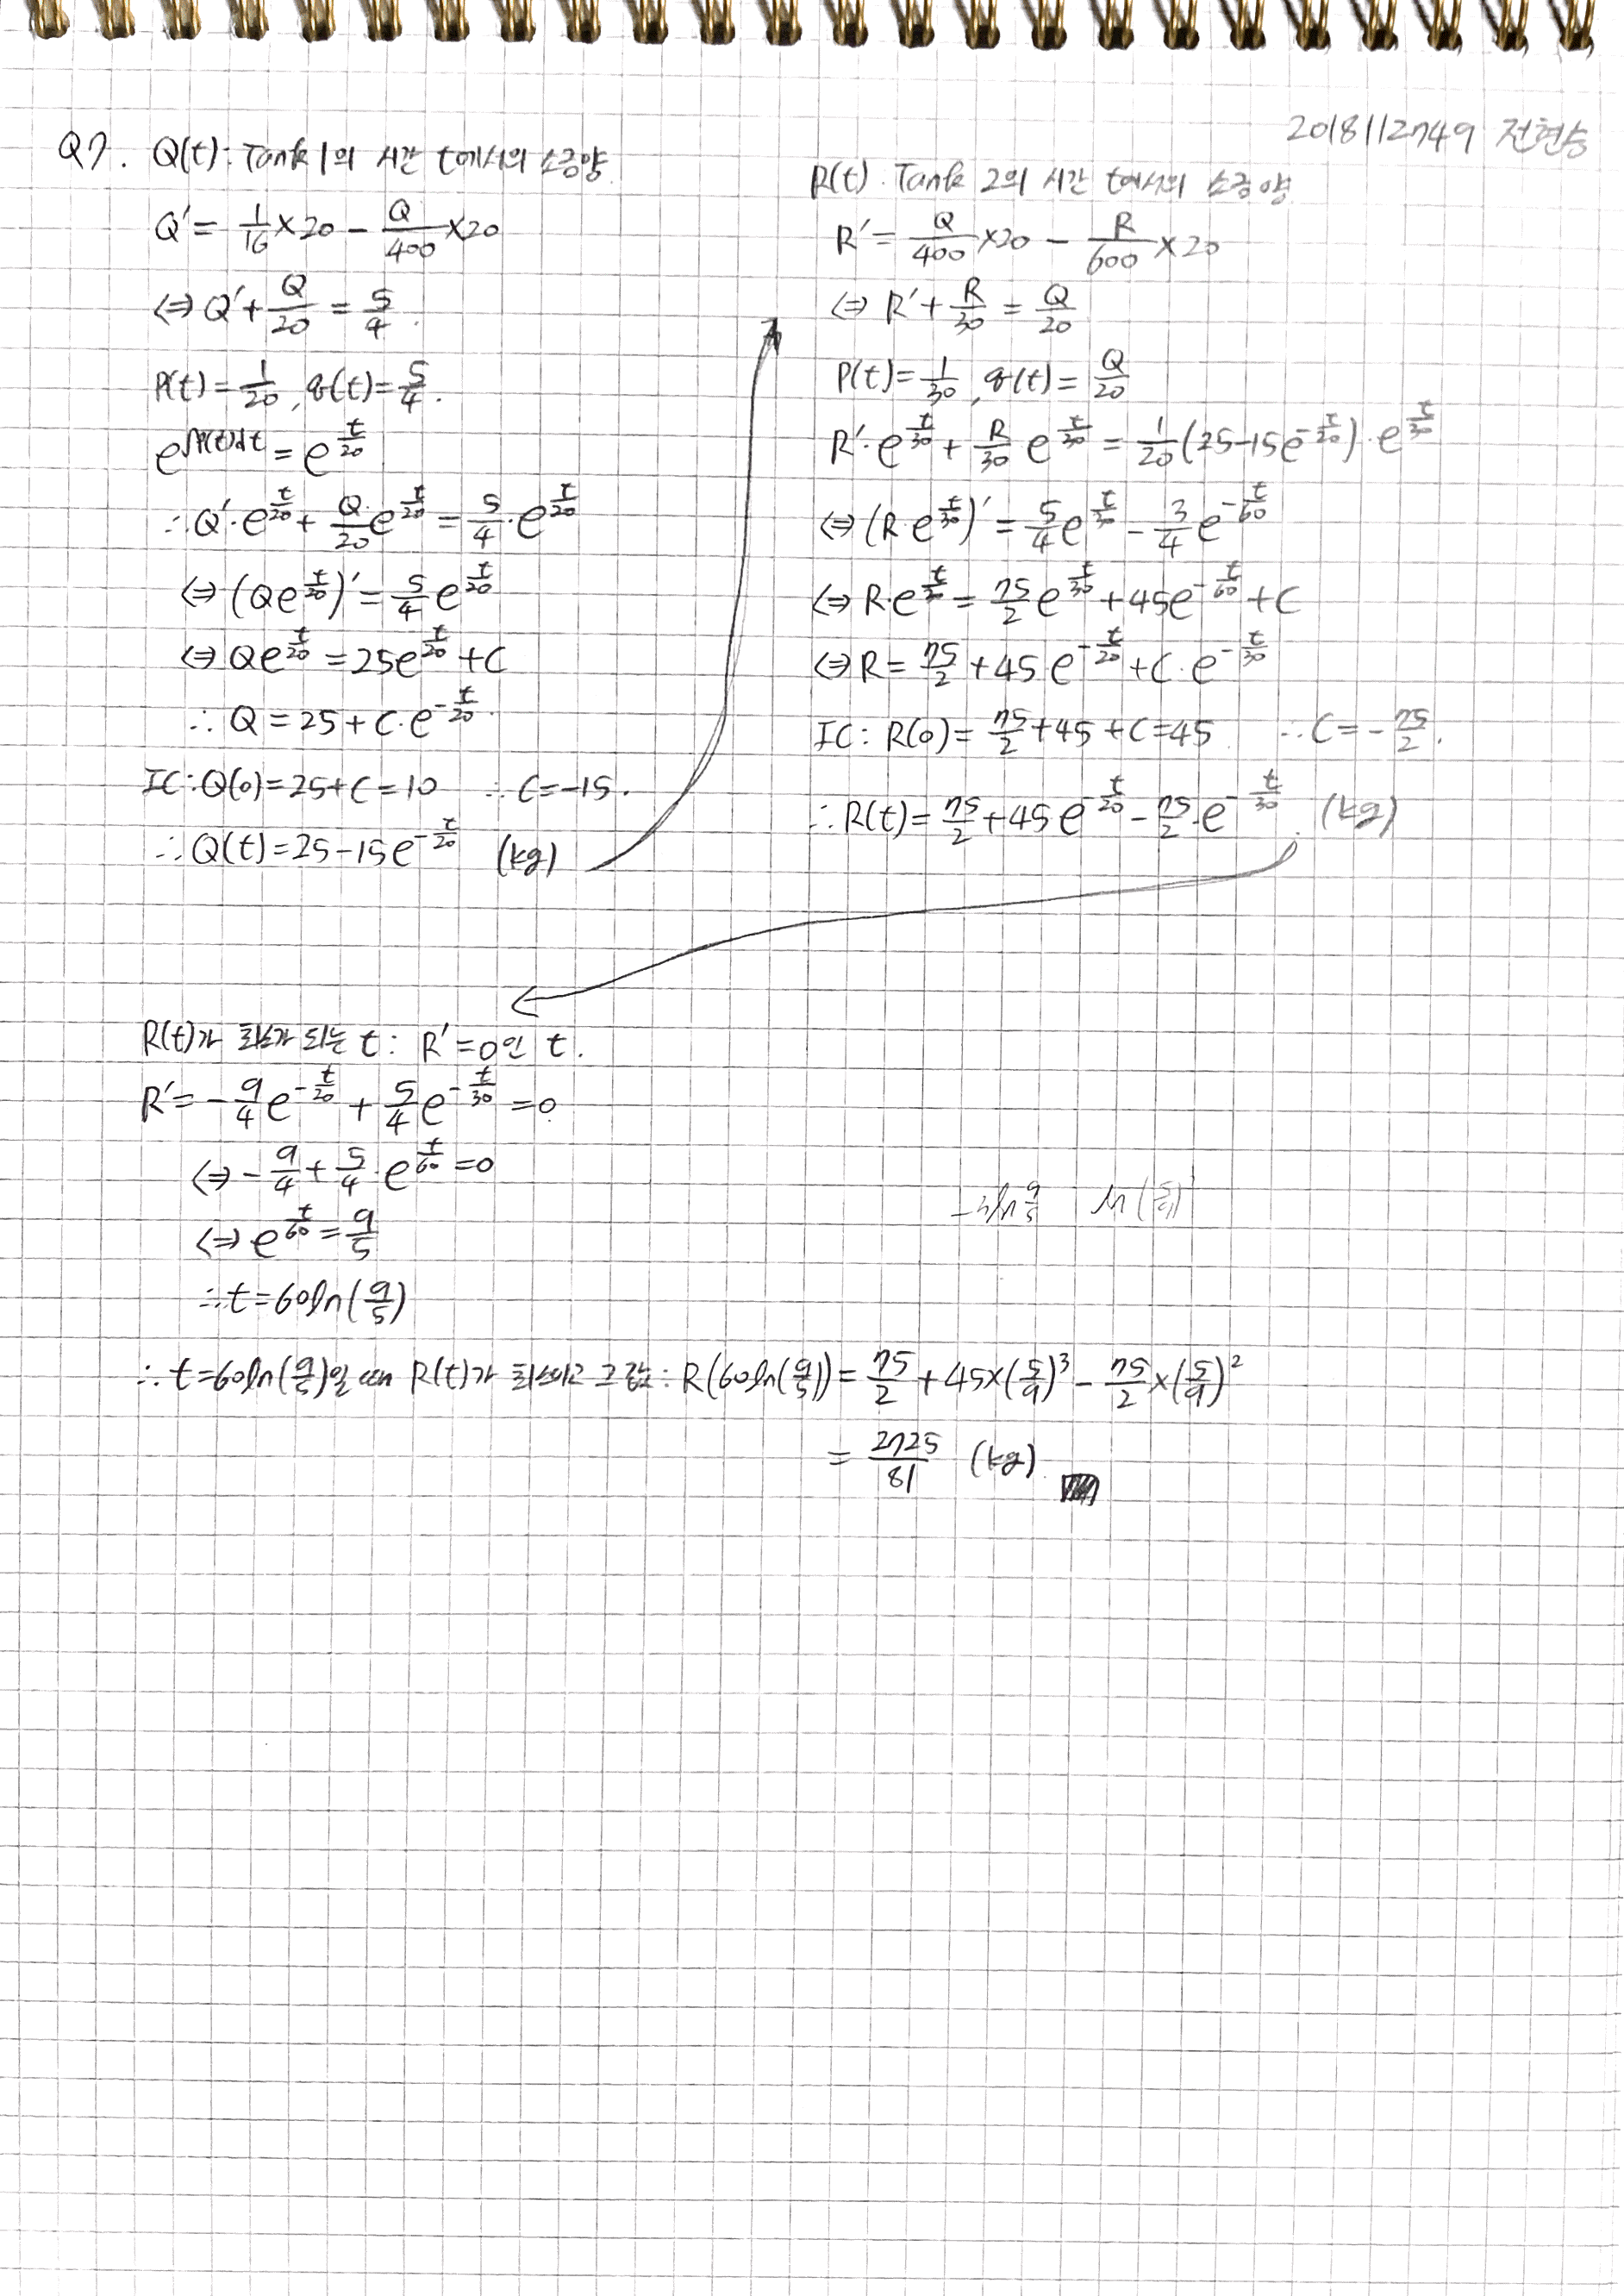 2018112749 전현승
Q7. Q(t): Tank 1의 시간 t에서의 소금양
Q' = 1/16 × 20 − Q/400 × 20
⇔ Q' + Q/20 = 5/4.
P(t) = 1/20, q(t) = 5/4.
e^∫P(t)dt = e^(t/20)
∴ Q'·e^(t/20) + Q/20 e^(t/20) = 5/4·e^(t/20)
⇔ (Qe^(t/20))' = 5/4 e^(t/20)
⇔ Qe^(t/20) = 25e^(t/20) + C
∴ Q = 25 + C·e^(−t/20).
IC: Q(0) = 25 + C = 10 ∴ C = −15.
∴ Q(t) = 25 − 15e^(−t/20) (kg)
R(t). Tank 2의 시간 t에서의 소금양
R' = Q/400 × 20 − R/600 × 20
⇔ R' + R/30 = Q/20
P(t) = 1/30, q(t) = Q/20
R'·e^(t/30) + R/30 e^(t/30) = 1/20 (25 − 15e^(−t/20))·e^(t/30)
⇔ (R·e^(t/30))' = 5/4 e^(t/30) − 3/4 e^(−t/60)
⇔ R·e^(t/30) = 75/2 e^(t/30) + 45e^(−t/60) + C
⇔ R = 75/2 + 45·e^(−t/20) + C·e^(−t/30)
IC: R(0) = 75/2 + 45 + C = 45 ∴ C = −75/2.
∴ R(t) = 75/2 + 45e^(−t/20) − 75/2·e^(−t/30). (kg)
R(t)가 최소가 되는 t: R' = 0인 t.
R' = −9/4 e^(−t/20) + 5/4 e^(−t/30) = 0
⇔ −9/4 + 5/4·e^(t/60) = 0
⇔ e^(t/60) = 9/5
∴ t = 60ln(9/5)
∴ t = 60ln(9/5)일 때 R(t)가 최소이고 그 값: R(60ln(9/5)) = 75/2 + 45×(5/9)^3 − 75/2×(5/9)^2
= 2725/81 (kg).